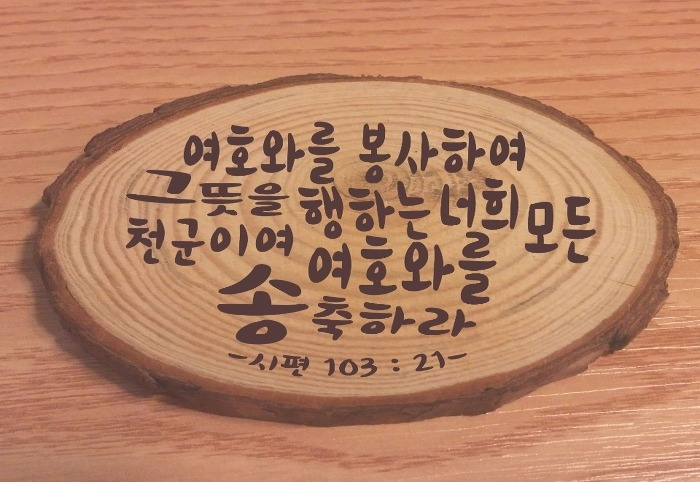 여호와를 봉사하여
그 뜻을 행하는 너희 모든
천군이여 여호와를
송축하라
-시편 103 : 21-